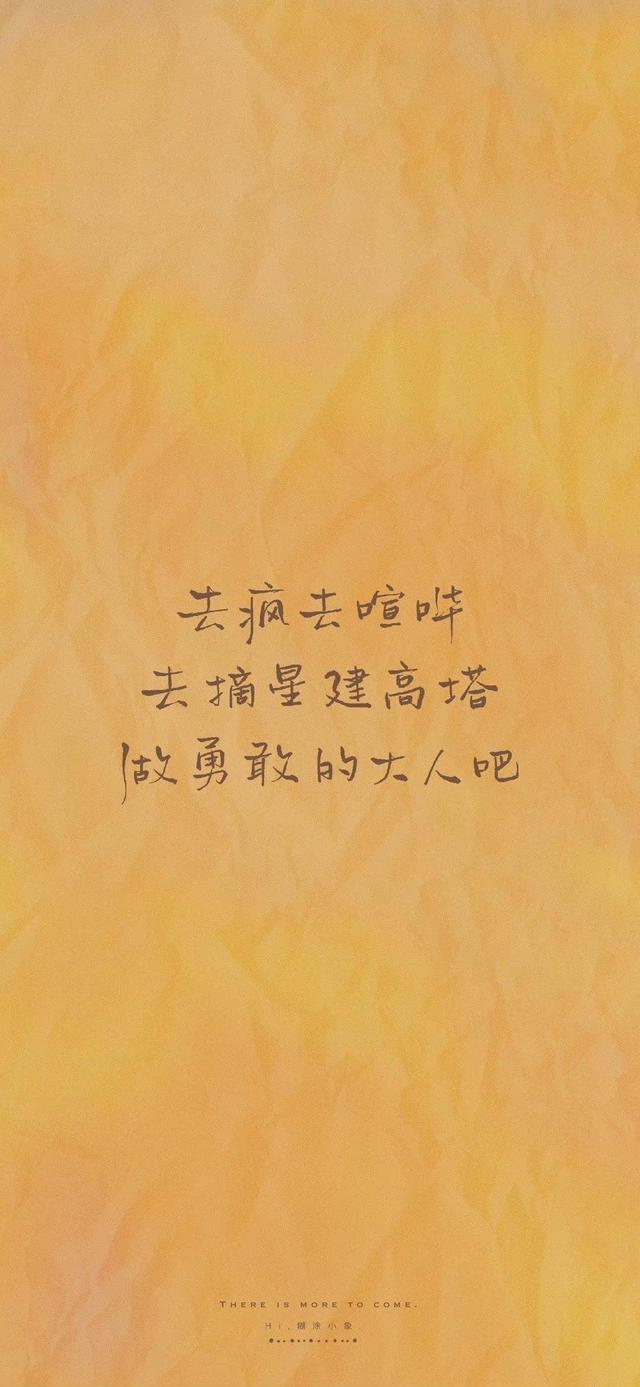 去疯去喧哗
去摘星建高塔
做勇敢的大人吧
THERE IS MORE TO COME.
Hi,糊涂小象